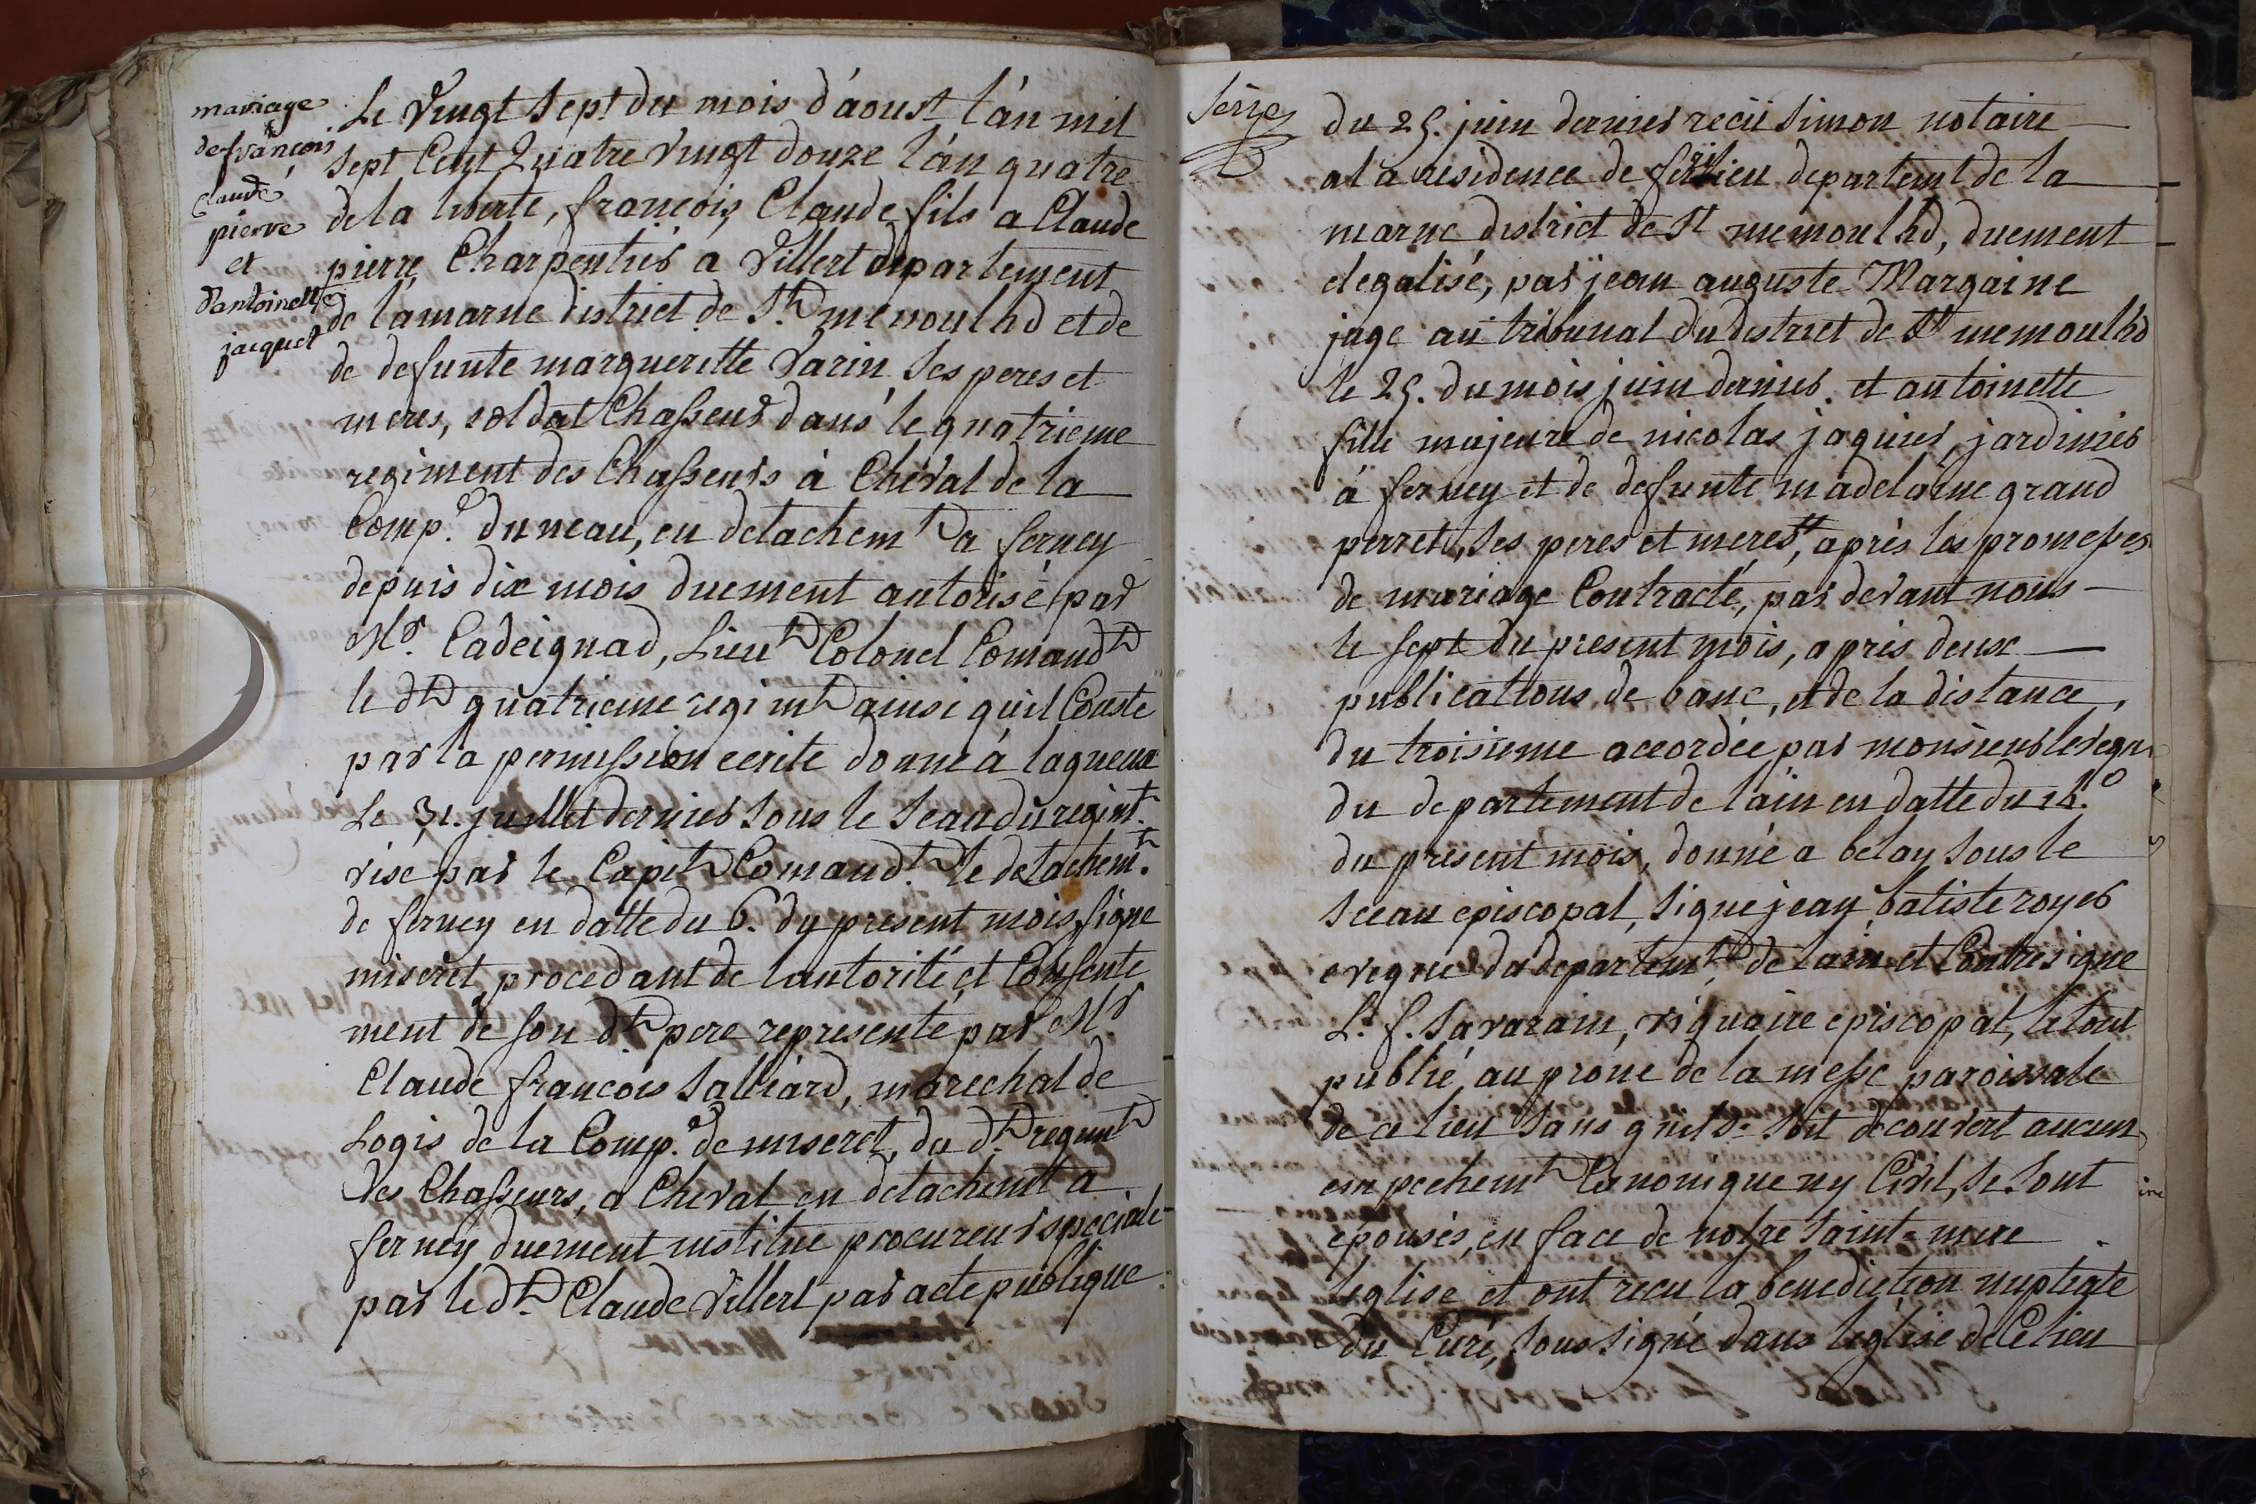 mariage
de françois
Claude
pierre
et
d'antoinette
jacquet
Le Vingt Sept du mois d'áoust l'án mil
sept Cent Quatre Vingt douze l'án quatre
de la liberte, françois, Claude fils a Claude
pierre, Charpentier a Villert departement
de lamarne district de St menoulhd et de
de defunte marguerette Varin ses peres et
meres, soldat Chasseur dans le quatrieme
regiment des Chasseurs à Cheval de la
Comp.e duneau, en detachemt a ferney
depuis dix mois duement autorisé par
Mr. Cadeignad, Lieut Colonel Comandt
le dt quatrieme regimt ainsi qu'il Conste
par la permission ecrite donné à lagueux
Le 31. juillet dernier sous le seau du regimt.
visé par le Capit Comandt. le detachemt.
de ferney en datte du 6. du present mois, signe
miseret, procedant de lautorité, et Consente
ment de son dt. pere represente par Mr
Claude françois Salliard, marechal de
Logis de la Comp.e de miseret, du dt. regimt
des Chasseurs, a Cheval en detachemt a
ferney duement institue procureur speciale
par le dt. Claude Villert par acte publique
Seize
du 25. juin dernier recu Simon notaire
a la residence de lieu departemt de la
marne district de St memoulhd, duement
elegalisé, par jean auguste Margaine
juge au tribunal du district de St memoulhd
le 25. du mois juin dernier. et antoinette
fille majeure de nicolas jaquier, jardinier
á ferney et de defunte madelaine grand
perret, ses peres et meres, après les promesses
de mariage Contracté, par devant nous
le sept du present mois, apris deux
publications de banc, et de la distance,
du troisieme accordée par monsieur levequ
du departement de láin en datte du
du present mois, donné a belay sous le
Sceau episcopal, signe jean batiste royer
eveque du departemt. de lain et Contresigne
L. f. Savarain, viquaire episcopal, le tout
publié, au prone de la messe paroissale
de ce lieu sans qu'il se soit decouvert aucun
empechemt Canonique ny Civil, se sont
épousés, en face de notre saint=mere
leglise et ont recu la benediction nuptiale
du Curé, soussigné dans leglise de Ce lieu